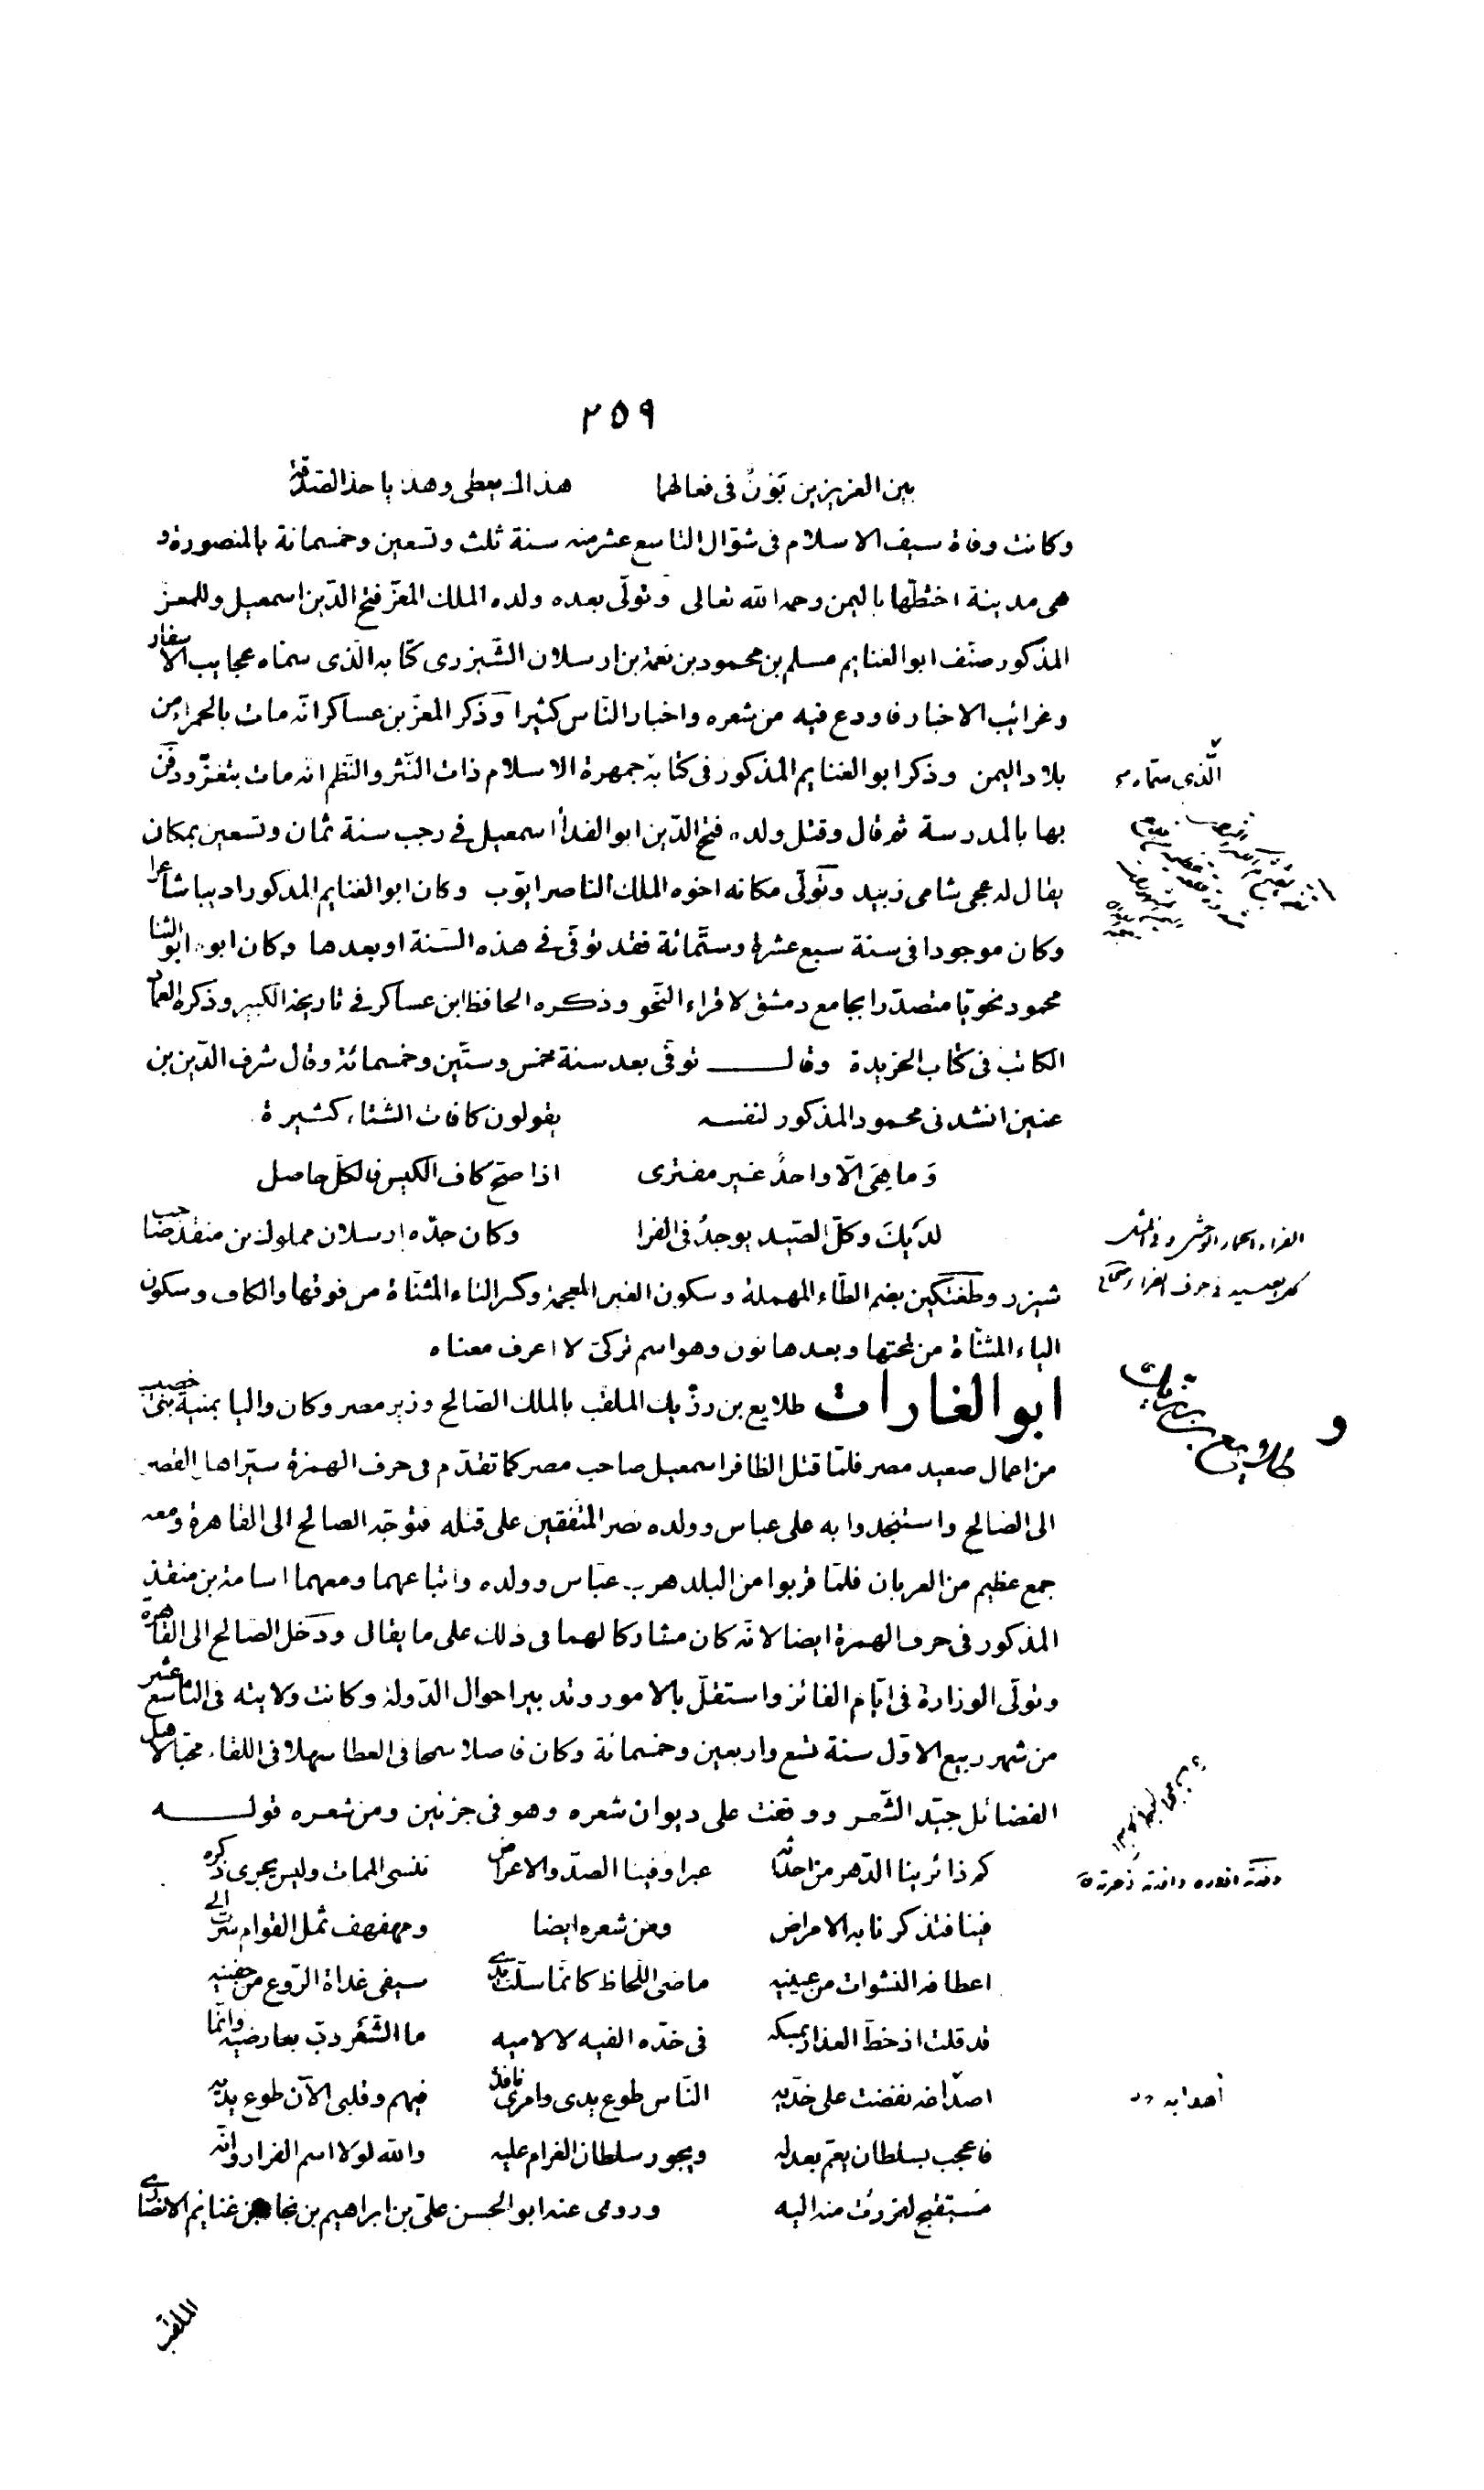 ٢٥٩
بين العزيزين بَوْنٌ فى فعالهما هذاك يعطى وهذا ياخذ الصّدقة
وكانت وفاة سيف الاسلام فى شوّال التاسع عشر منه سنة ثلث وتسعين وخمسمائة بالمنصورة و
هى مدينة اختطّها باليمن رحمه الله تعالى وتولّى بعده ولده الملك المعزّ فتح الدّين اسمعيل وللمعز
المذكور صنّف ابو الغنايم مسلم بن محمود بن نعمة بن ارسلان الشّيزرى كتابه الّذى سمّاه عجايب الاسفار
وغرائب الاخبار فاودع فيه من شعره واخبار النّاس كثيرا وذكر المعزّ بن عساكر انّه مات بالحمراء من
بلاد اليمن وذكر ابو الغنايم المذكور فى كتابه جمهرة الاسلام ذات النّثر والنّظم انه مات بتعزّ ودفن
الّذى سمّاه
بها بالمدرسة ثم قال وقتل ولده فتح الدّين ابو الفدأ اسمعيل فى رجب سنة ثمان وتسعين بمكان
يقال له عجى شامى زبيد وتولّى مكانه اخوه الملك الناصر ايّوب وكان ابو الغنايم المذكور اديبا شاعرا
وكان موجودا فى سنة سبع عشرة وستّمائة فقد توفّى فى هذه السّنة او بعدها وكان ابوه ابو الثنا
محمود نحويّا متصدّرا بجامع دمشق لاقراء النّحو وذكره الحافظ ابن عساكر فى تاريخه الكبير وذكره العماد
الكاتب فى كتاب الخريدة وقال توفّى بعد سنة خمس وستّين وخمسمائة وقال شرف الدّين بن
عنين انشدنى محمود المذكور لنفسه يقولون كافات الشّتاء كثيرة
وَما هِىَ الّا واحدٌ غير مفترى اذا صحّ كاف الكيس فالكلّ حاصل
لدَيكَ وكلّ الصّيد يوجدُ فى الفرا وكان جدّه ارسلان مملوك بن منقذ صاحب
الفراء الحمار الوحشى وفى المثل
شيزر وطغتكين بضم الطّاء المهملة وسكون الغين المعجمة وكسر التاء المثنّاة من فوقها والكاف وسكون
الياء المثنّاة من تحتها وبعدها نون وهو اسم تركىّ لا اعرف معناه
ابو الغارات طلايع بن رزّيك الملقب بالملك الصّالح وزير مصر وكان واليا بمنية بنى خصيب
و طلايع بن رزيك
من اعمال صعيد مصر فلمّا قتل الظافر اسمعيل صاحب مصر كما تقدّم فى حرف الهمزة سيّر اهل القصر
الى الصالح واستنجدوا به على عباس وولده نصر المتّفقين على قتله فتوجّه الصالح الى القاهرة ومعه
جمع عظيم من العربان فلمّا قربوا من البلد هرب عبّاس وولده واتباعهما ومعهما اسامة بن منقذ
المذكور فى حرف الهمزة ايضا لانّه كان مشاركا لهما فى ذلك على ما يقال ودخل الصّالح الى القاهرة
وتولّى الوزارة فى ايّام الفائز واستقلّ بالامور وتدبير احوال الدّولة وكانت ولايته فى التاسع عشر
من شهر ربيع الاوّل سنة تسع واربعين وخمسمائة وكان فاضلا سمحا فى العطا سهلا فى اللقاء محبّا لاهل
الفضائل جيّد الشّعر ووقفت على ديوان شعره وهو فى جزئين ومن شعره قوله
كم ذا يُرينا الدّهر من احداثه عبرا وفينا الصدّ والاعراض ننسى الممات وليس يجرى ذكره
فينا فتذكرنا به الامراض ومن شعره ايضا ومهفهف ثمل القوام سَرَت الى
اعطافه النشوات من عينيه ماضى اللّحاظ كانّما سلّت يدى سيفى غداة الرّوع من جفنيه
قد قلت اذ خطّ العذار بمسكه فى خدّه الفيه لا لاميه ما الشّعر دبّ بعارضيه وانّما
اصداغه نفضت على خدّيه النّاس طوع يدى وامرى نافذ فيهم وقلبى الآن طوع يديه
أهدابه
فاعجب بسلطان يعمّ بعدله ويجور سلطان الغرام عليه والله لولا اسم الفرار وانّه
مستقبح لفررت منه اليه وروى عنه ابو الحسن علىّ بن ابراهيم بن نجا بن غنايم الانصارى
الملقب